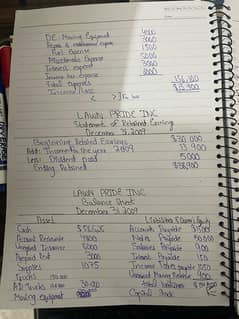 DE Mowing Equipment 4000
Repair & maintenance expense 7060
Fuel Expense 1500
Miscellaneous Expense 5000
Interest expense 3000
Income tax expense 8000
Total Expenses 156,100
Income / Loss $13,900
LAWN PRIDE INC
Statement of Retained Earnings
December 31, 2009
Beginning Retained Earnings $30,000
Add: Income for the year 2009 13,900
Less: Dividend paid 5000
Ending Retained $38,900
LAWN PRIDE INC
Balance Sheet
December 31, 2009
Asset Liabilities & Owner's Equity
Cash Accounts Payable
Account Receivable 4800 Notes Payable 50,000
Unexpired Insurance 8000 Salaries Payable
Prepaid Rent 3000 Interest Payable 150
Supplies 1075 Income Taxes payable
Trucks Unearned Mowing Revenue 900
AD: Trucks Total liabilities
Mowing equipment Capital Stock